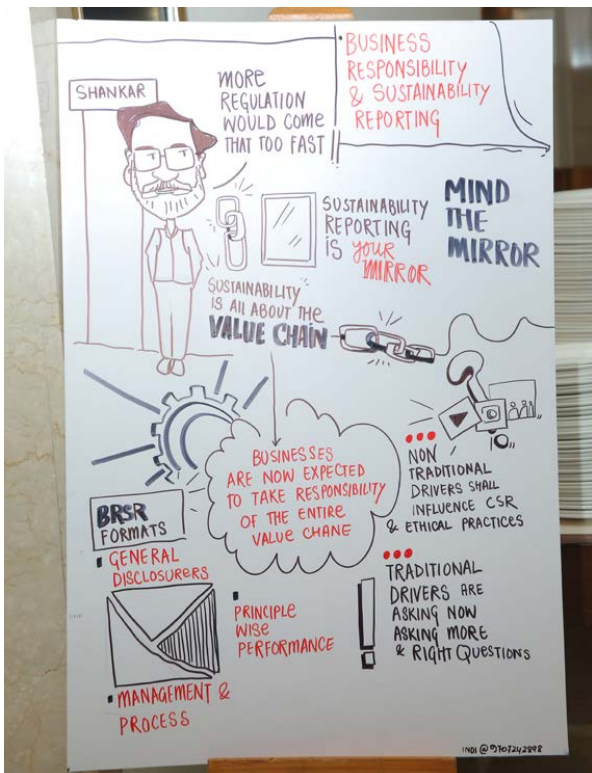 BUSINESS
RESPONSIBILITY
& SUSTAINABILITY
REPORTING
SHANKAR
MORE
REGULATION
WOULD COME
THAT TOO FAST
SUSTAINABILITY
REPORTING
IS YOUR
MIRROR
MIND
THE
MIRROR
SUSTAINABILITY
IS ALL ABOUT THE
VALUE CHAIN
BUSINESSES
ARE NOW EXPECTED
TO TAKE RESPONSIBILITY
OF THE ENTIRE
VALUE CHANE
NON
TRADITIONAL
DRIVERS SHALL
INFLUENCE CSR
& ETHICAL PRACTICES
BRSR
FORMATS
GENERAL
DISCLOSURERS
PRINCIPLE
WISE
PERFORMANCE
MANAGEMENT &
PROCESS
TRADITIONAL
DRIVERS ARE
ASKING NOW
ASKING MORE
& RIGHT QUESTIONS
INDI @ 9707242898